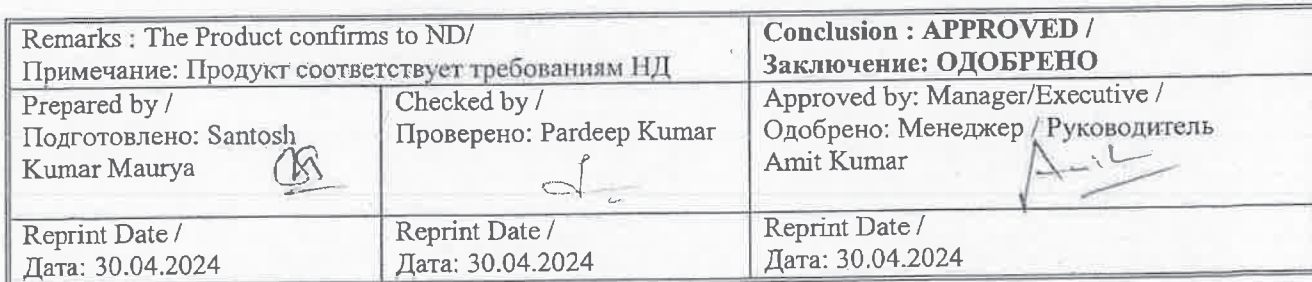 Remarks : The Product confirms to ND/
Примечание: Продукт соответствует требованиям НД
Conclusion : APPROVED /
Заключение: ОДОБРЕНО
Prepared by /
Подготовлено: Santosh
Kumar Maurya
Checked by /
Проверено: Pardeep Kumar
Approved by: Manager/Executive /
Одобрено: Менеджер / Руководитель
Amit Kumar
Amit
Reprint Date /
Дата: 30.04.2024
Reprint Date /
Дата: 30.04.2024
Reprint Date /
Дата: 30.04.2024